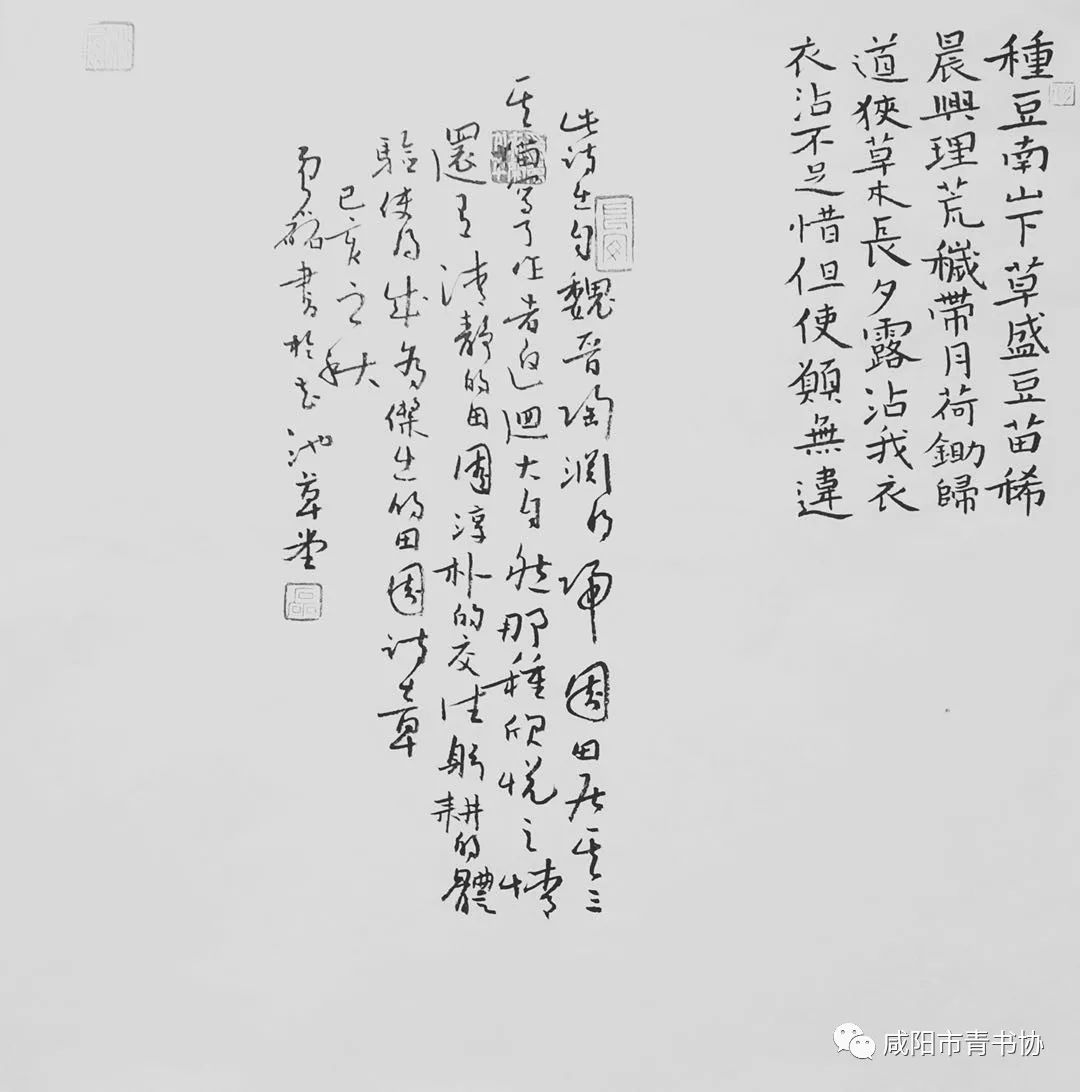 種豆南山下草盛豆苗稀
晨興理荒穢帶月荷鋤歸
道狹草木長夕露沾我衣
衣沾不足惜但使願無違
此詩出自魏晋陶淵明歸園田居其三
其描寫了作者迴大自然那種欣悦之情
還有清静的田園淳朴的交往躬耕的體
驗使得成為傑出的田園詩章
己亥之秋
書於池草堂
咸阳市青书协